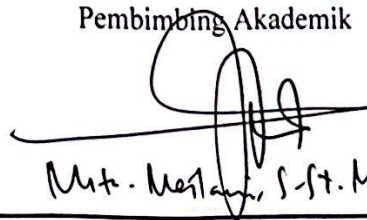 Pembimbing Akademik
Meilani, S.St. M